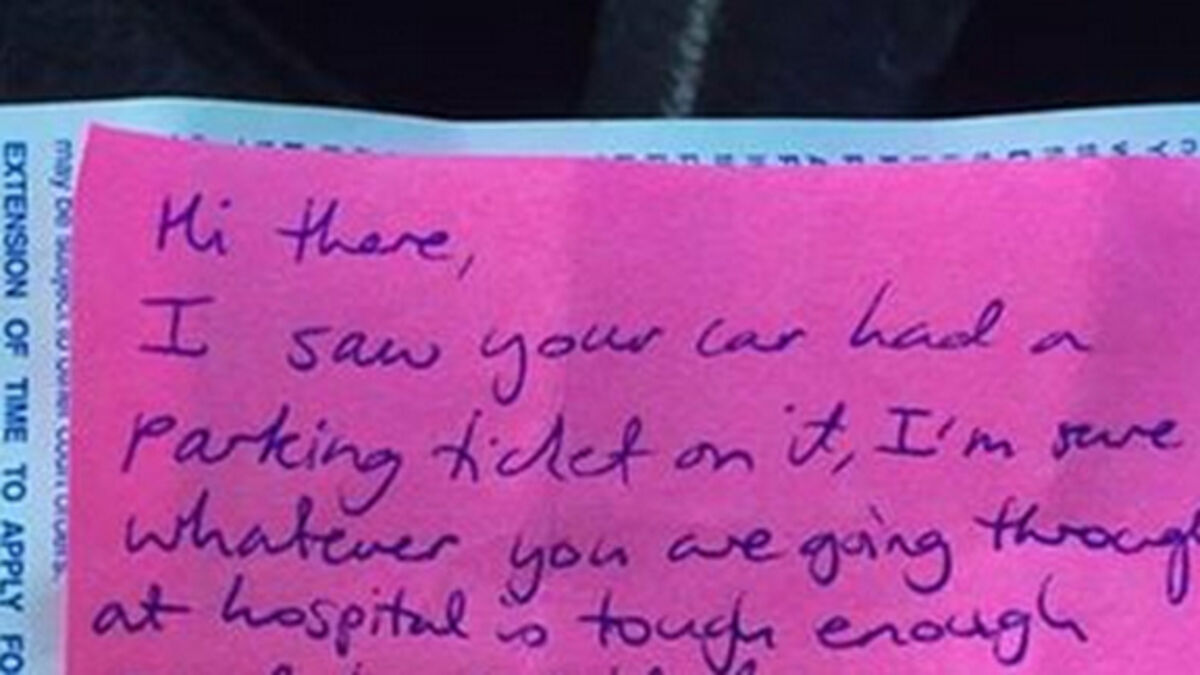 Hi there,
I saw your car had a
parking ticket on it, I'm sure
whatever you are going through
at hospital is tough enough
EXTENSION OF TIME TO APPLY FO
may be subject to